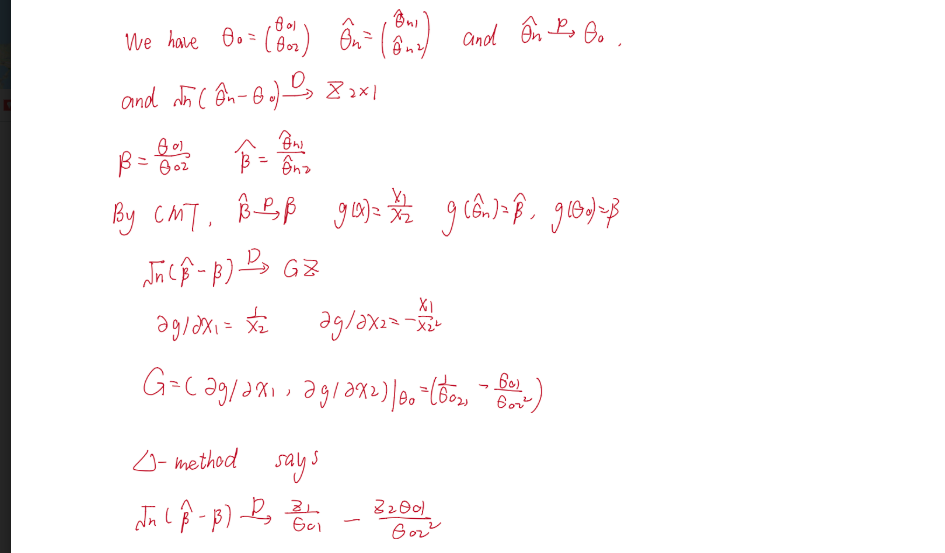 We have θ₀ = (θ₀₁ θ₀₂) θ̂n = (θ̂n1 θ̂n2) and θ̂n →ᴾ θ₀ .
and √n ( θ̂n - θ₀ ) →ᴰ Z 2×1
β = θ₀₁/θ₀₂ β̂ = θ̂n1/θ̂n2
By CMT, β̂ →ᴾ β g(x) = X₁/X₂ g(θ̂n) = β̂, g(θ₀) = β
√n ( β̂ - β ) →ᴰ GZ
∂g/∂x₁ = 1/X₂ ∂g/∂x₂ = - X₁/X₂²
G = ( ∂g/∂x₁ , ∂g/∂x₂ )|θ₀ = ( 1/θ₀₂, - θ₀₁/θ₀₂² )
△- method says
√n ( β̂ - β ) →ᴰ Z₁/θ₀₁ - Z₂θ₀₁/θ₀₂²